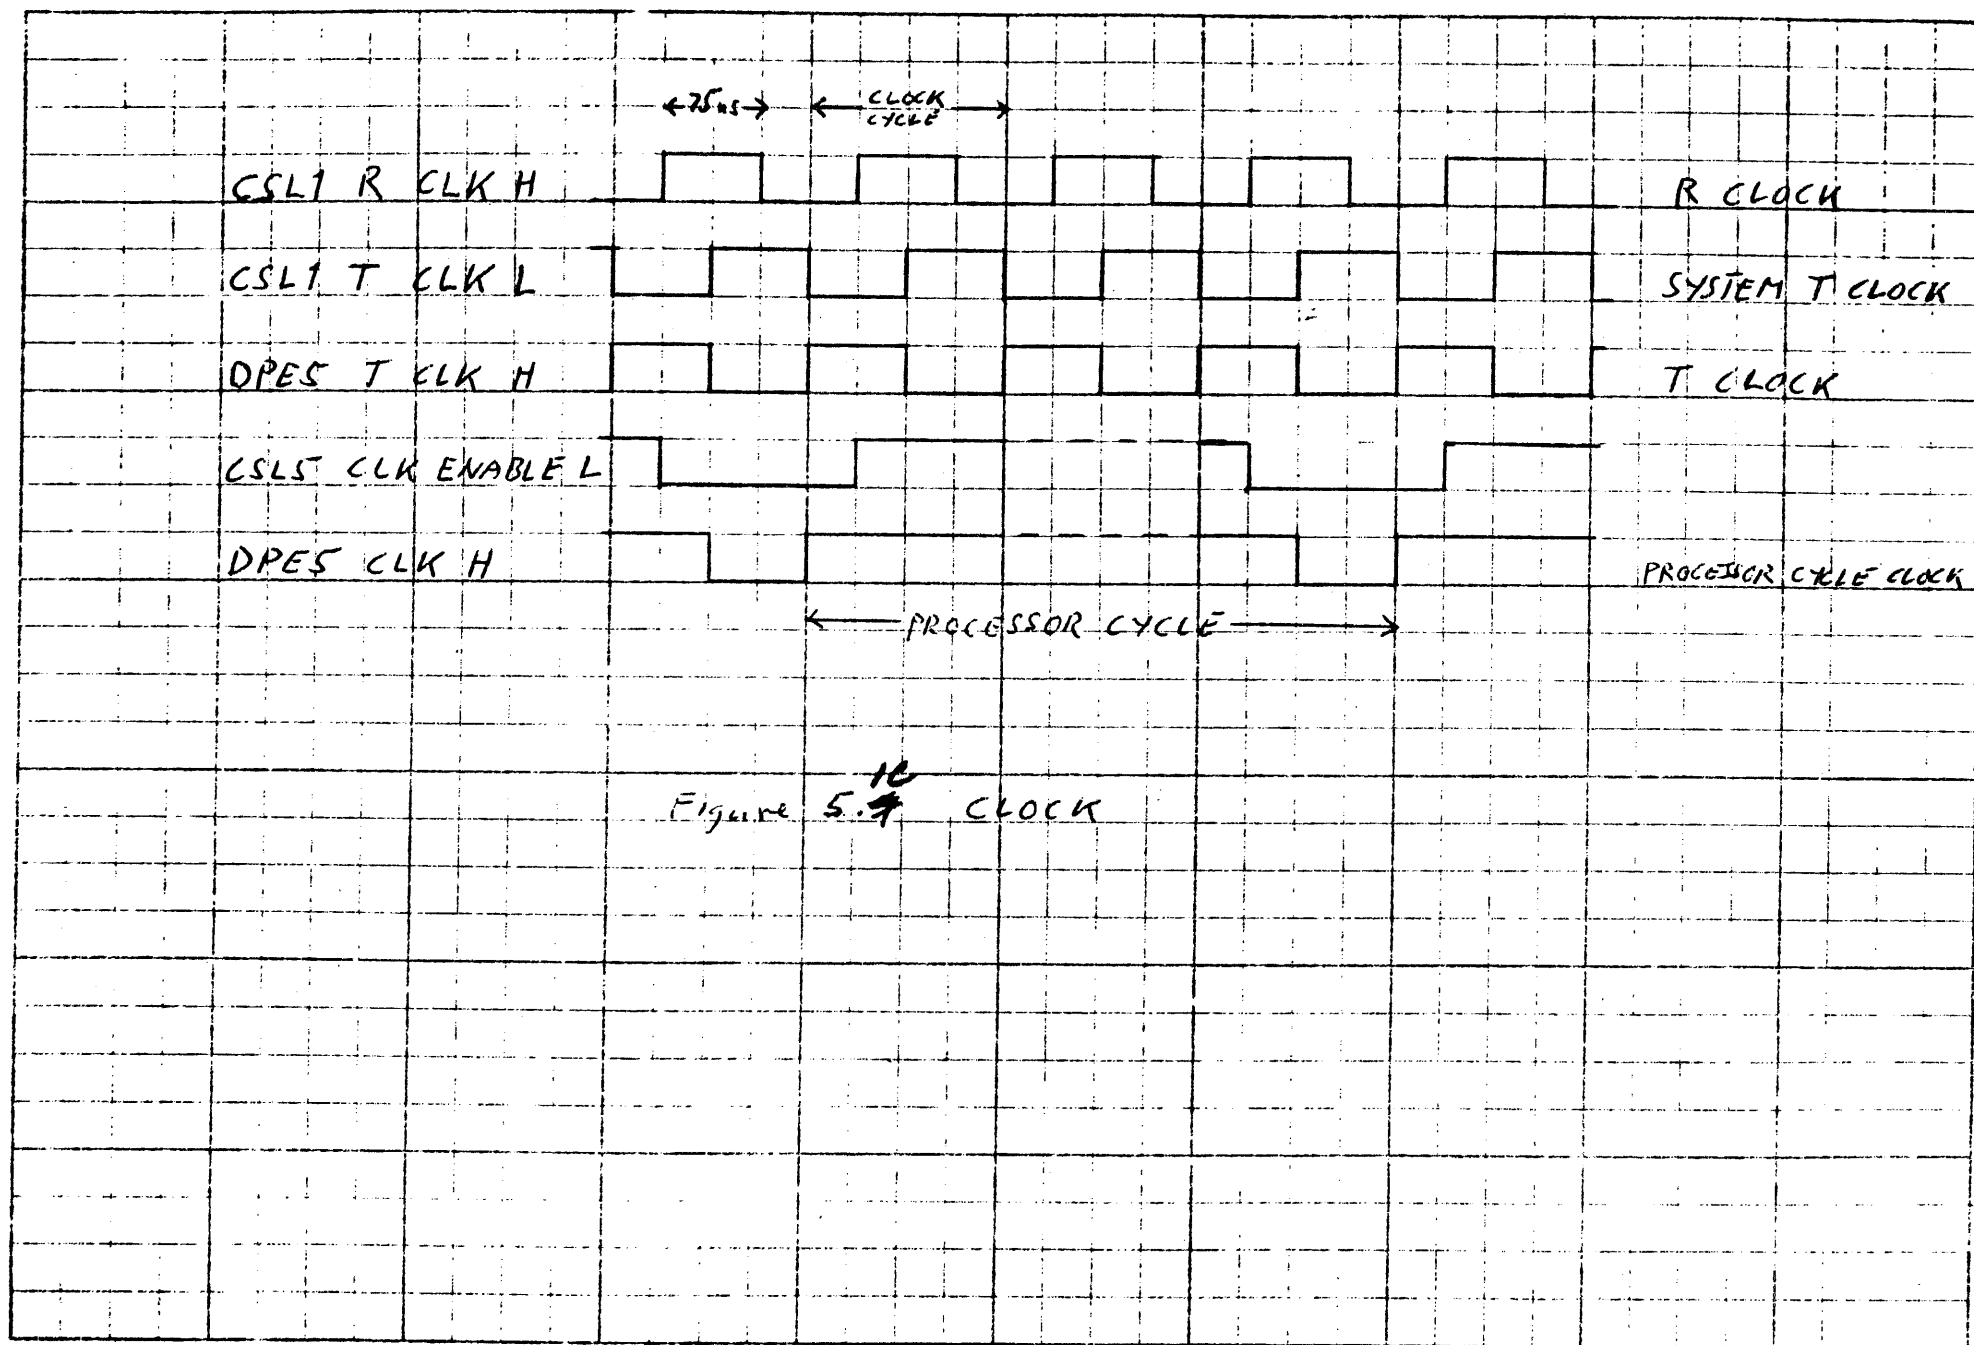 75ns
CLOCK
CYCLE
CSL1 R CLK H
R CLOCK
CSL1 T CLK L
SYSTEM T CLOCK
DPE5 T CLK H
T CLOCK
CSL5 CLK ENABLE L
DPE5 CLK H
PROCESSOR CYCLE CLOCK
PROCESSOR CYCLE
Figure 5. CLOCK